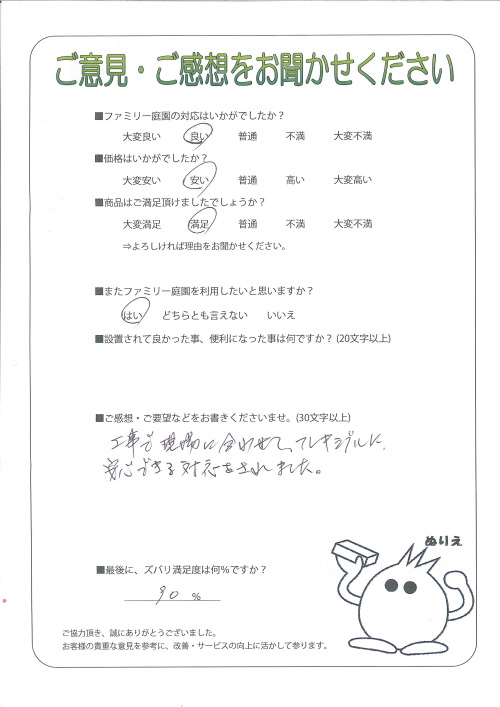 ご意見・ご感想をお聞かせください
■ファミリー庭園の対応はいかがでしたか？
大変良い 良い 普通 不満 大変不満
■価格はいかがでしたか？
大変安い 安い 普通 高い 大変高い
■商品はご満足頂けましたでしょうか？
大変満足 満足 普通 不満 大変不満
⇒よろしければ理由をお聞かせください。
■またファミリー庭園を利用したいと思いますか？
はい どちらとも言えない いいえ
■設置されて良かった事、便利になった事は何ですか？(20文字以上)
■ご感想・ご要望などをお書きくださいませ。(30文字以上)
工事も現場に合わせて、フレキシブルに、
安心できる対応をされました。
ぬりえ
■最後に、ズバリ満足度は何％ですか？
90 %
ご協力頂き、誠にありがとうございました。
お客様の貴重な意見を参考に、改善・サービスの向上に活かして参ります。